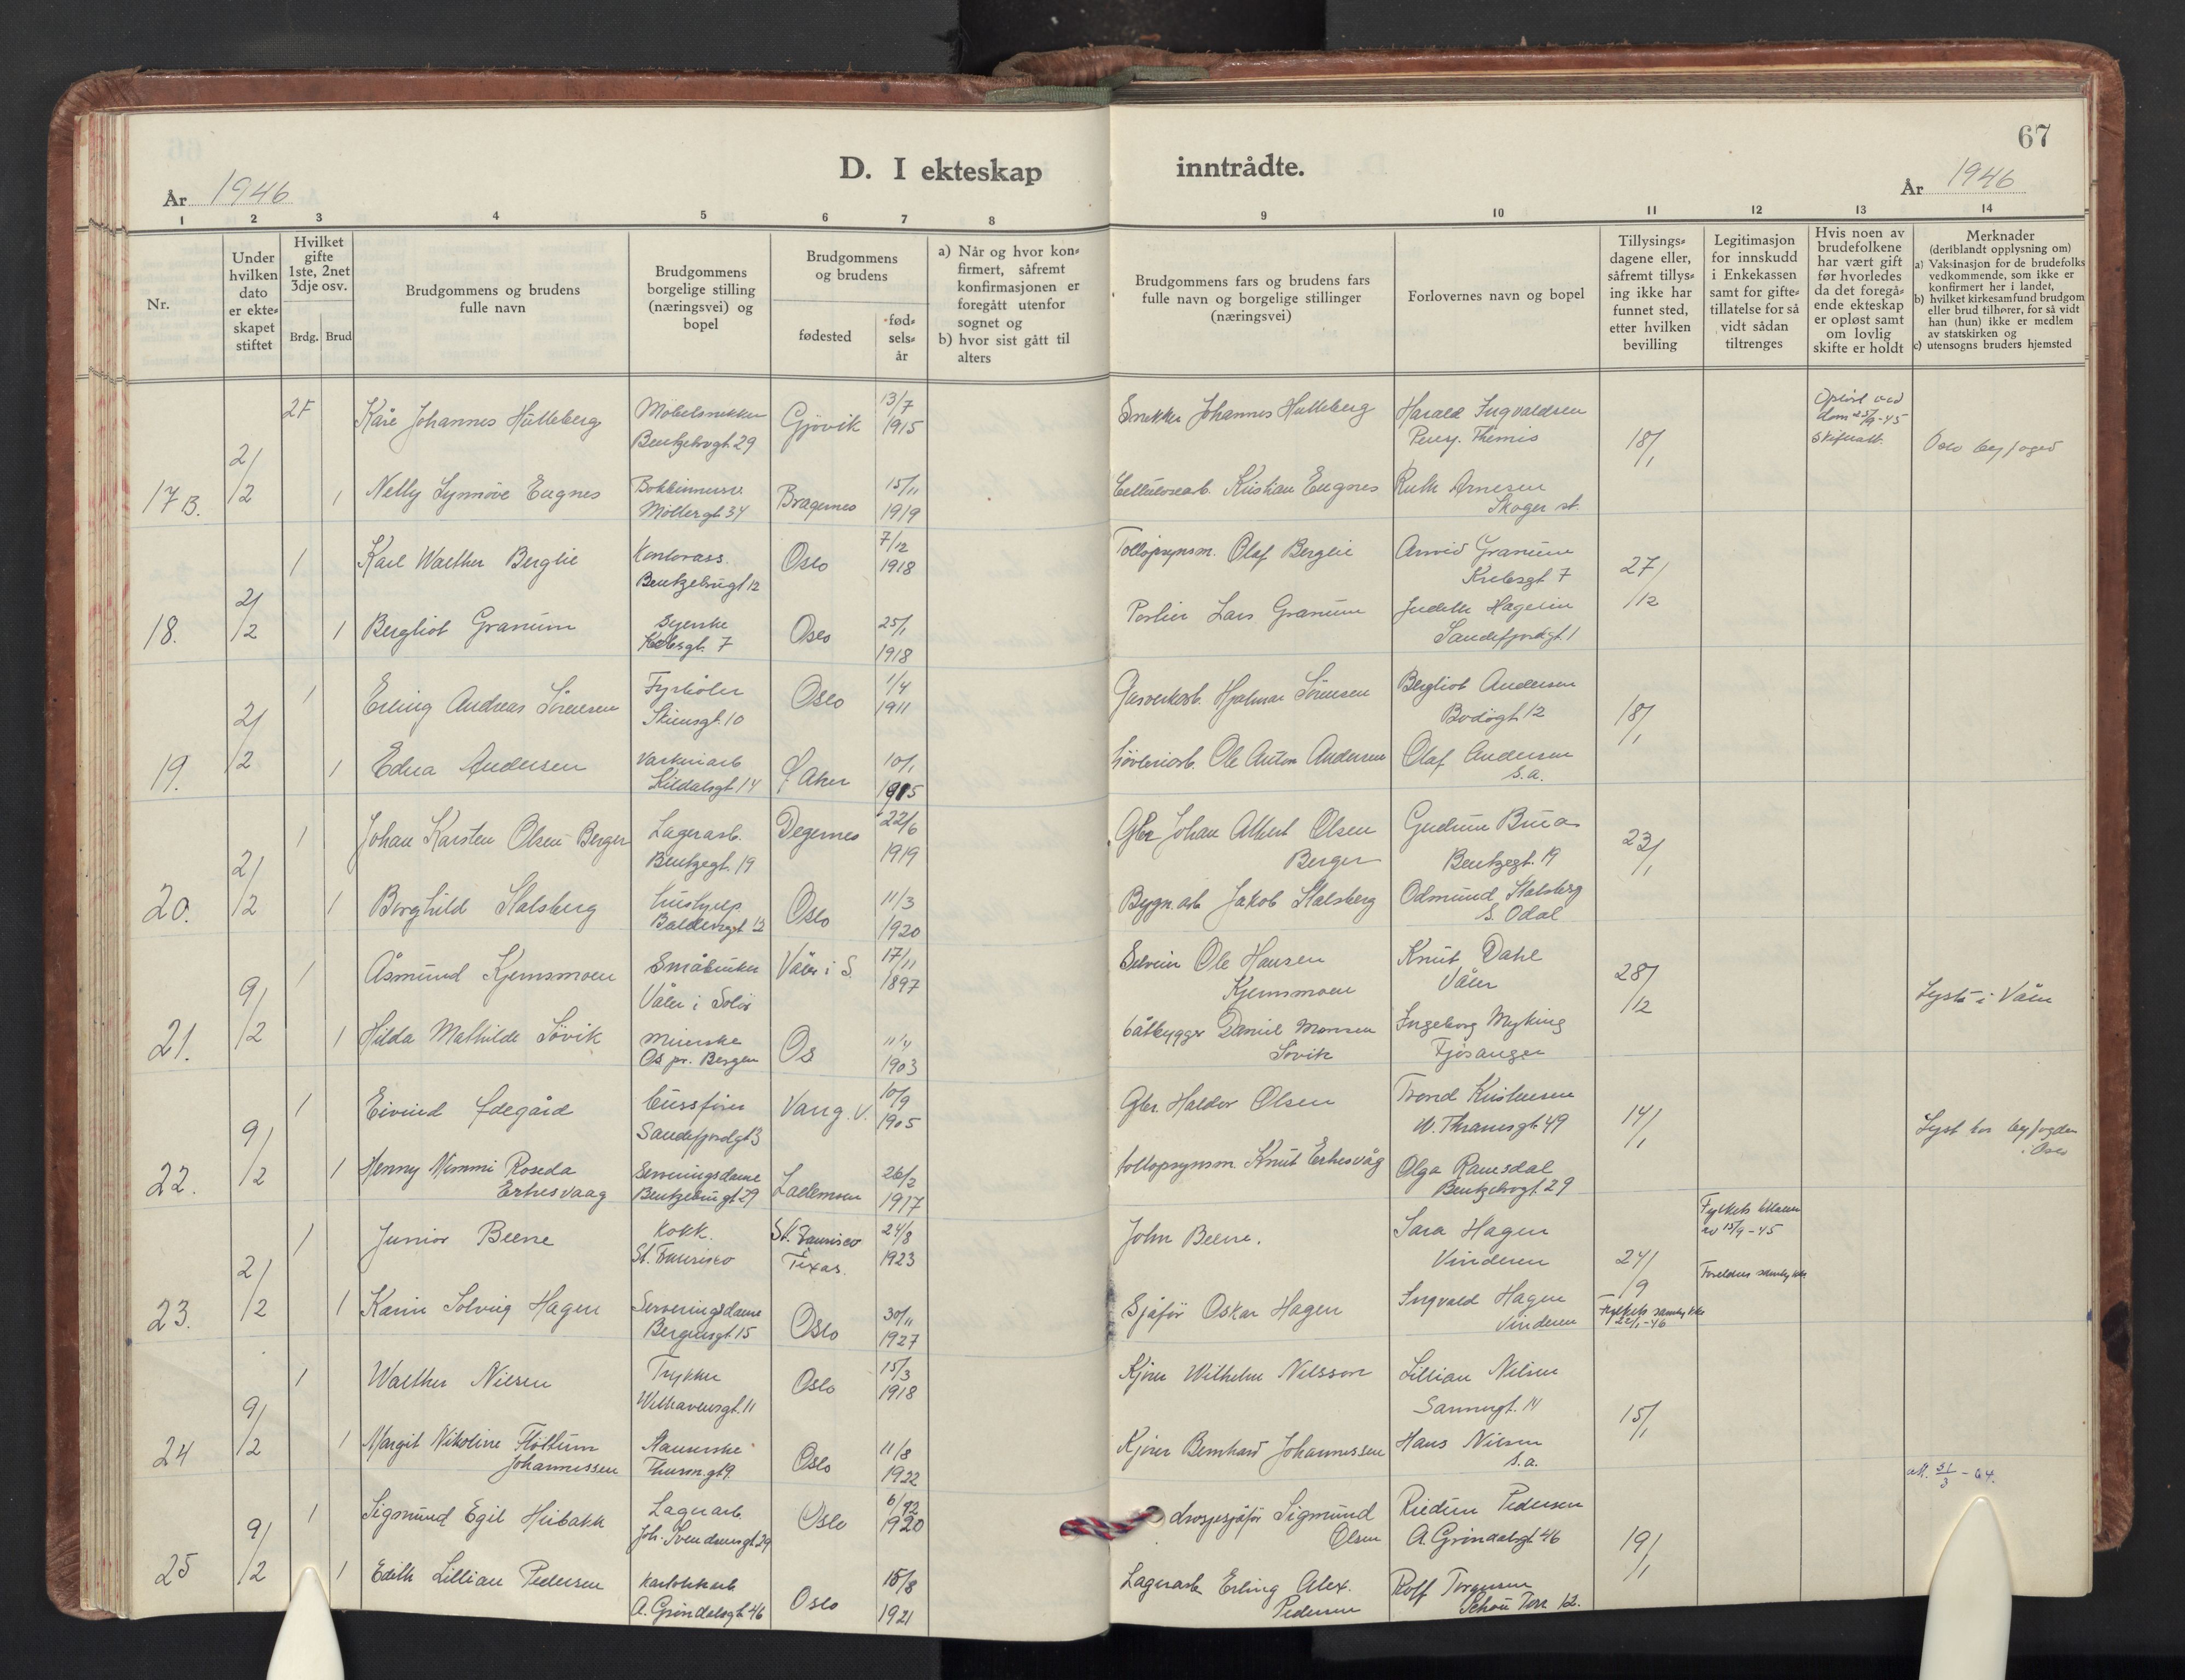 67
D. I ekteskap inntrådte.
År 1946
År 1946
1 2 3 4 5 6 7 8 9 10 11 12 13 14
Nr.
Under hvilken dato er ekte-skapet stiftet
Hvilket gifte 1ste, 2net 3dje osv.
Brdg. Brud
Brudgommens og brudens fulle navn
Brudgommens borgelige stilling (næringsvei) og bopel
Brudgommens og brudens
fødested
fød-sels-år
a) Når og hvor kon-firmert, såfremt konfirmasjonen er foregått utenfor sognet og
b) hvor sist gått til alters
Brudgommens fars og brudens fars fulle navn og borgelige stillinger (næringsvei)
Forlovernes navn og bopel
Tillysings-dagene eller, såfremt tillys-ing ikke har funnet sted, etter hvilken bevilling
Legitimasjon for innskudd i Enkekassen samt for gifte-tillatelse for så vidt sådan tiltrenges
Hvis noen av brudefolkene har vært gift før hvorledes da det foregå-ende ekteskap er opløst samt om lovlig skifte er holdt
Merknader
(deriblandt opplysning om)
a) Vaksinasjon for de brudefolks vedkommende, som ikke er konfirmert her i landet,
b) hvilket kirkesamfund brudgom eller brud tilhører, for så vidt han (hun) ikke er medlem av statskirken og
c) utensogns bruders hjemsted
17 B. 2/2
2F Kåre Johannes Hulleberg Møbelsnekker Gjøvik 13/7 1915 Snekker Johannes Hulleberg Harald Ingvaldsen 18/1
Bentzebrugt 29 Pensj. Themis
dom 25/9-45
Oslo byfoged
1 Nelly Synnøve Eugnes Bragernes 15/11 1919 Cellulosearb. Kristian Eugnes Ruth Arnesen
Møllergt 34 Skoger st.
18. 2/2
1 Karl Walther Berglie Kontorass. Oslo 7/12 1918 Tollopsynsm. Olaf Berglie Arvid Granum 27/12
Bentzebrugt 12 Krebsgt 7
1 Bergliot Granum Syerske Oslo 25/1 1918 Portier Lars Granum Judith Hagelin
Krebsgt. 7 Sandefjordgt 1
19. 2/2
1 Erling Andreas Sörensen Fyrböter Oslo 1/4 1911 Gasverksarb. Hjalmar Sörensen Bergliot Andersen 18/1
Skiensgt. 10 Bodögt 12
1 Edna Andersen Vaskeriarb Aker 10/1 1915 Høvleriarb. Ole Anton Andersen Olaf Andersen
Kildalsgt 14 s.a.
20. 2/2
1 Johan Karsten Olsen Berger Lagerarb. Degernes 22/6 1919 Gbr Johan Albert Olsen Berger Gudrun Brua 23/1
Bentzegt. 19 Bentzegt. 19
1 Borghild Stalsberg Hushjelp Oslo 11/3 1920 Bygn.arb Jakob Stalsberg Odmund Stalsberg
Baldersgt 12 S. Odal
21. 9/2
1 Åsmund Kjemsmoen Småbruker Våler i S. 17/11 1897 Selveier Ole Hansen Kjemsmoen Knut Dahl 28/12
Våler i Solör Våler
Lyst i Våler
1 Hilda Mathilde Sövik Meierske Os 11/4 1903 båtbygger Daniel Monsen Sövik Ingeborg Myking
Os pr. Bergen Fjøsanger
22. 9/2
1 Eivind Ødegård bussfører Vang. V. 10/9 1905 Gbr. Haldor Olsen Trond Kristensen 14/1
Sandefjordgt 3 M. Thranesgt 49
Lyst hos byfogden i Oslo
1 Henny Mimmi Roseda Erhesvaag Serveringsdame 26/2 1917 tollopsynsm. Knut Erhesvåg Olga Ramsdal
Bentzebrugt 29 Bentzebrogt. 29
23. 2/2
1 Junior Beene Kokk. St. Fancisco Texas. 24/8 1923 John Beene. Sara Hagen 24/9
St. Francisco Vinderen
av 15/9-45
1 Karin Solveig Hagen Serveringsdame Oslo 30/11 1927 Sjåfør Oskar Hagen Ingvald Hagen
Bergensgt. 15 Vinderen
Foreldres samtykke
Fylkets samtykke 22/1-46
24 9/2
1 Walther Nilsen Trykker Oslo 15/3 1918 Kjörer Wilhelm Nilsson Lillian Nilsen 15/1
Sannergt. 14
1 Margit Nikoline Flöttum Johannessen Oslo 11/8 1922 Kjörer Bernhard Johannessen Hans Nilsen
s.a.
25 9/2
1 Sigmund Egil Heibakk Lagerarb. Oslo 6/12 1920 drosjesjåför Sigmund Olsen Pedersen 19/1
Joh. Svendsensgt. 29 A. Grindalsgt 46
att. 31/3 - 64.
1 Edith Lillian Pedersen Oslo 15/8 1921 Lagerarb Erling Alex. Pedersen Rolf Torgersen
A. Grindalsgt 46 Schous Terr. 12.